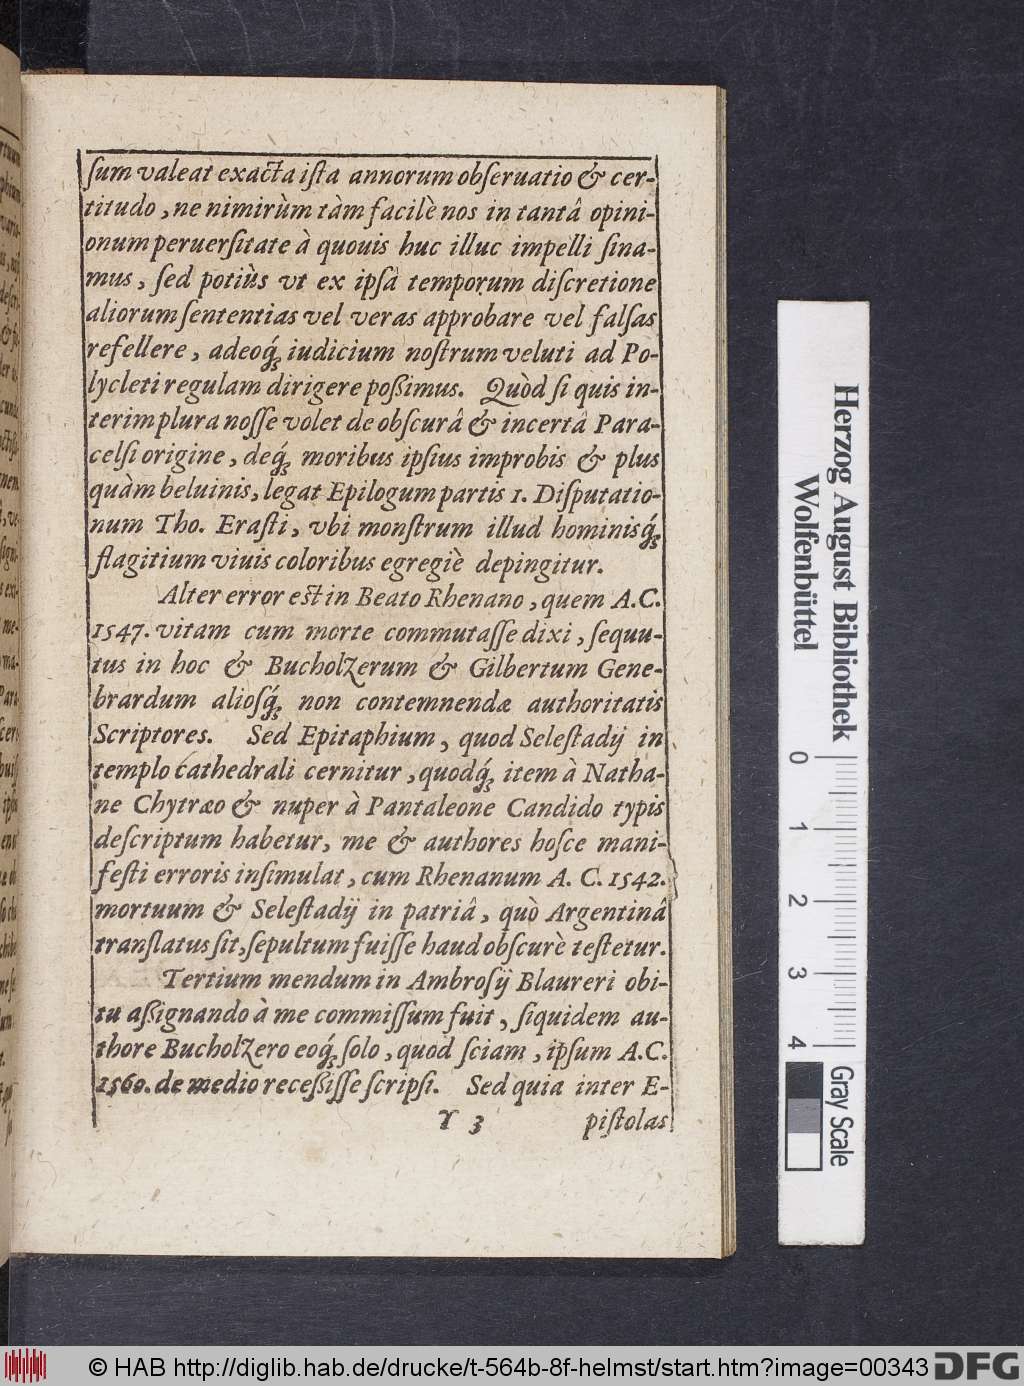 ſum valeat exacta iſta annorum obſeruatio & cer-
titudo, ne nimirùm tàm facilè nos in tantâ opini-
onum peruerſitate à quouis huc illuc impelli ſina-
mus, ſed potiùs vt ex ipſâ temporum diſcretione
aliorum ſententias vel veras approbare vel falſas
refellere, adeoq́ꝫ iudicium noſtrum veluti ad Po-
lycleti regulam dirigere poßimus. Quòd ſi quis in-
terim plura noſſe volet de obſcurâ & incertâ Para-
celſi origine, deq́ꝫ moribus ipſius improbis & plus
quàm beluinis, legat Epilogum partis 1. Diſputatio-
num Tho. Eraſti, vbi monſtrum illud hominisq́ꝫ
flagitium viuis coloribus egregiè depingitur.
Alter error est in Beato Rhenano, quem A.C.
1547. vitam cum morte commutaſſe dixi, ſequu-
tus in hoc & Bucholzerum & Gilbertum Gene-
brardum alioſq́ꝫ non contemnendæ authoritatis
Scriptores. Sed Epitaphium, quod Seleſtadij in
templo cathedrali cernitur, quodq́ꝫ item à Natha-
ne Chytræo & nuper à Pantaleone Candido typis
deſcriptum habetur, me & authores hoſce mani-
feſti erroris inſimulat, cum Rhenanum A. C. 1542.
mortuum & Seleſtadij in patriâ, quò Argentinâ
tranſlatus ſit, ſepultum fuiſſe haud obſcurè teſtetur.
Tertium mendum in Ambroſij Blaureri obi-
tu aßignando à me commiſſum fuit, ſiquidem au-
thore Bucholzero eoq́ꝫ ſolo, quod ſciam, ipſum A.C.
1560. de medio receßiſſe ſcripſi. Sed quia inter E-
Y 3 piſtolas
Herzog August Bibliothek
Wolfenbüttel
0 1 2 3 4
Gray Scale
© HAB http://diglib.hab.de/drucke/t-564b-8f-helmst/start.htm?image=00343 DFG